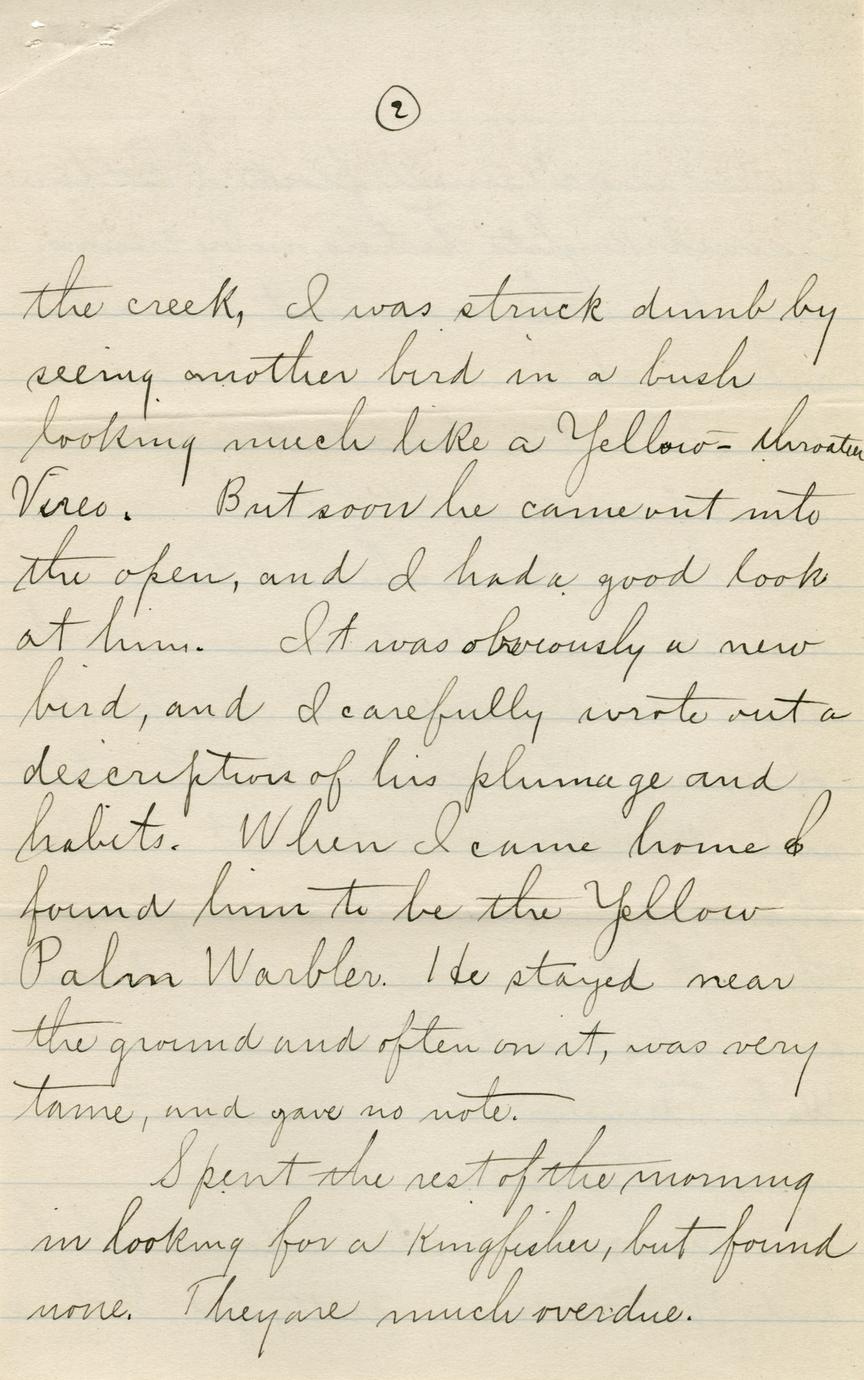 2
the creek, I was struck dumb by
seeing another bird in a bush
looking much like a Yellow-throated
Vireo. But soon he came out into
the open, and I had a good look
at him. It was obviously a new
bird, and I carefully wrote out a
description of his plumage and
habits. When I came home I
found him to be the Yellow
Palm Warbler. He stayed near
the ground and often on it, was very
tame, and gave no note.
Spent the rest of the morning
in looking for a Kingfisher, but found
none. They are much overdue.